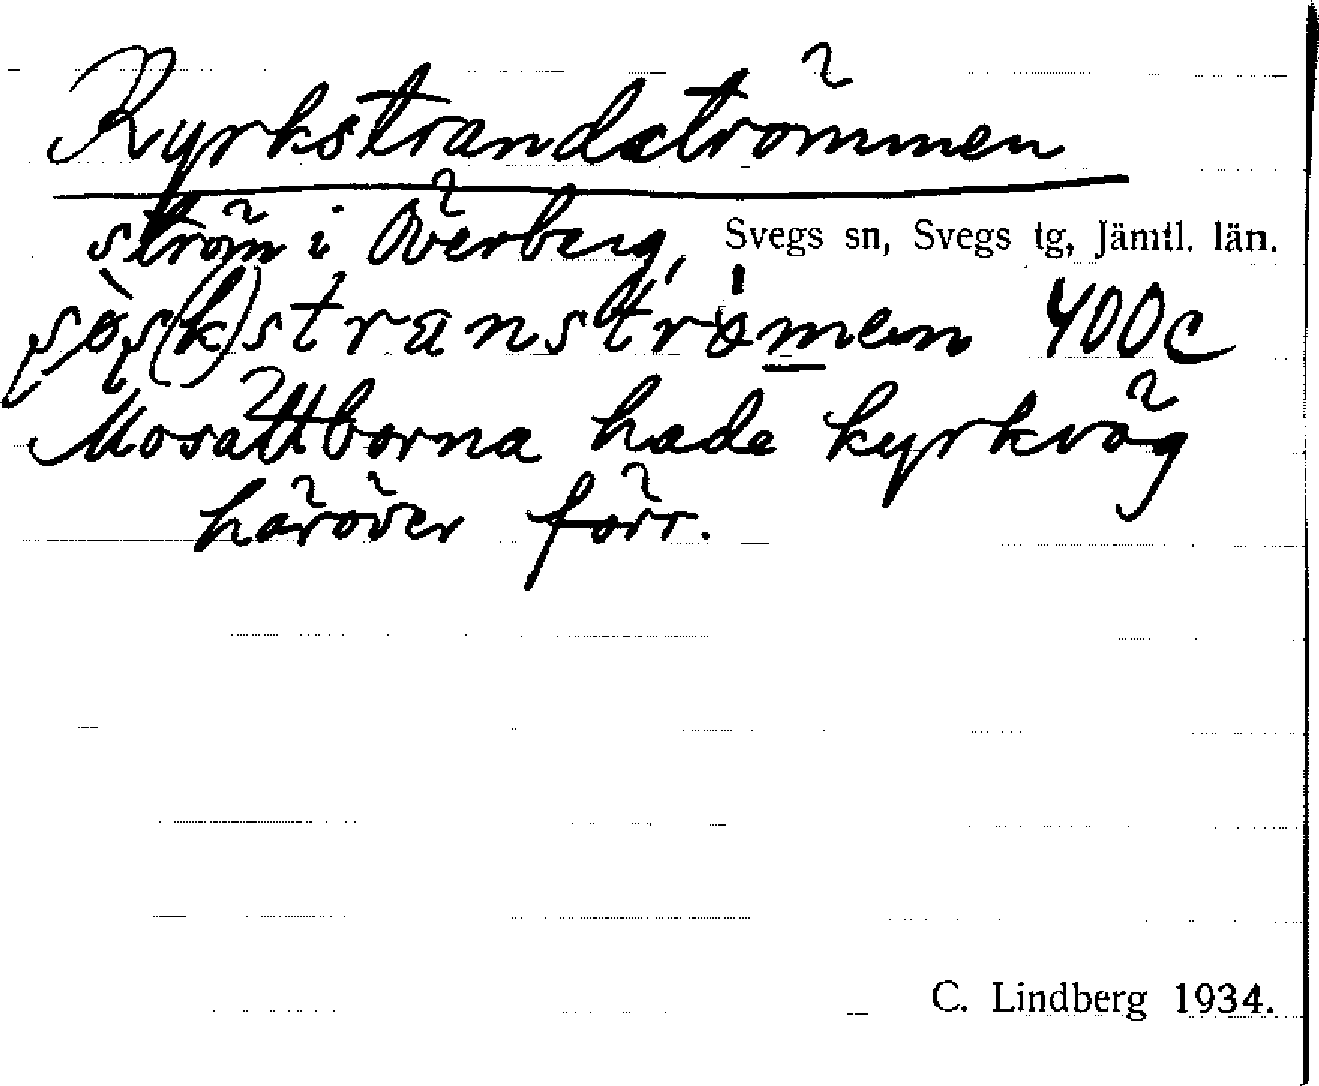 Kyrkstrandströmmen
ström i Överberg, Svegs sn, Svegs tg, Jämtl. län.
400c
Mosättborna hade kyrkväg
häröver förr.
C. Lindberg 1934.